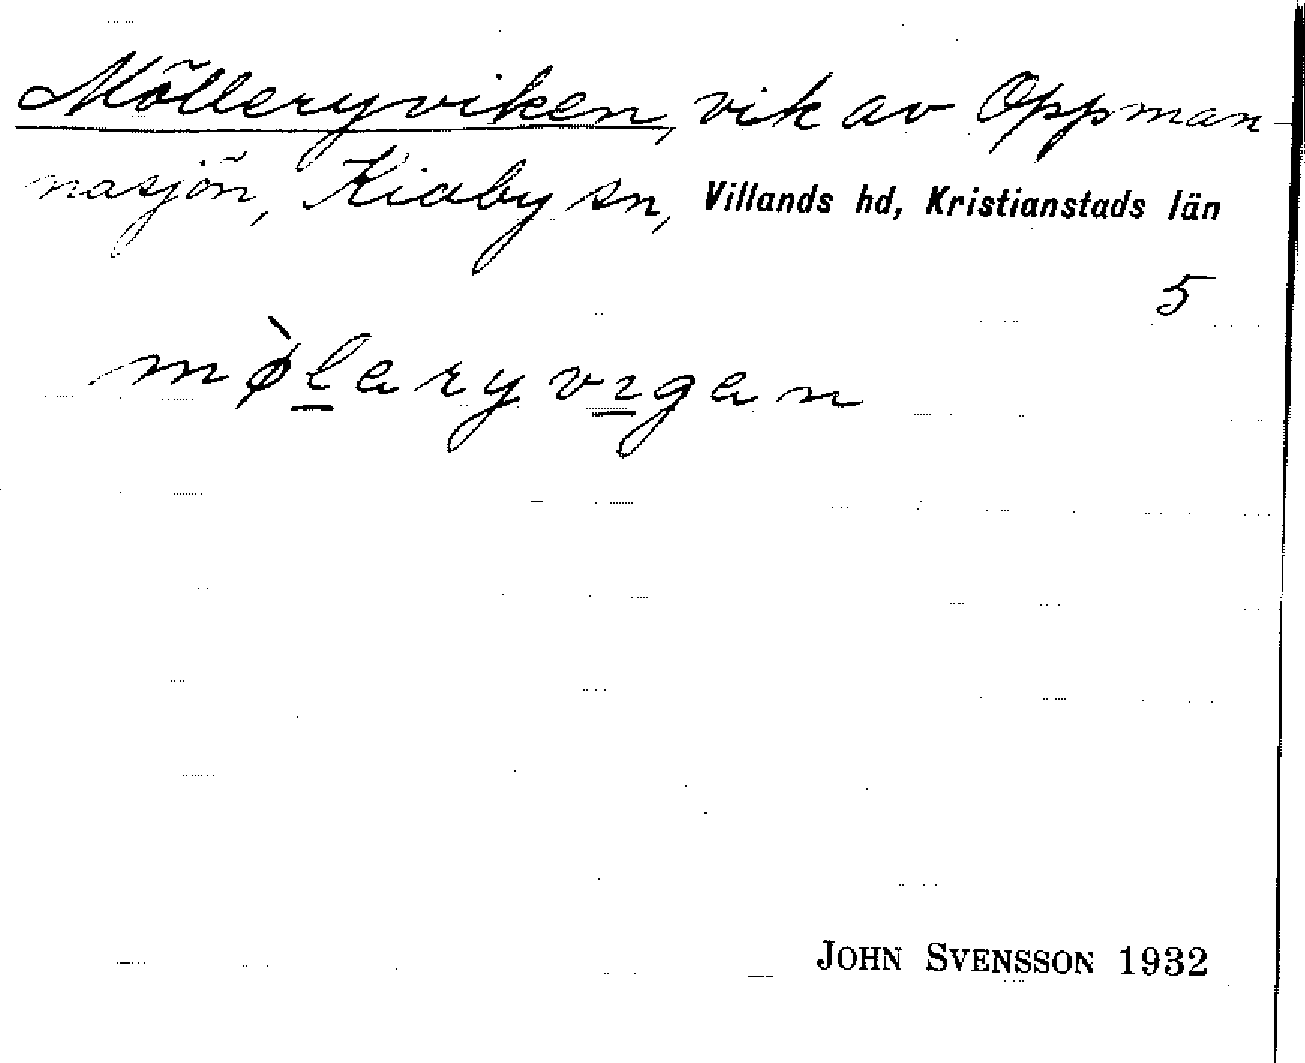 Mölleryviken, vik av Oppman-
nasjön, Kiaby sn, Villands hd, Kristianstads län
5
mø̀l̲aryvı̲gan
JOHN SVENSSON 1932